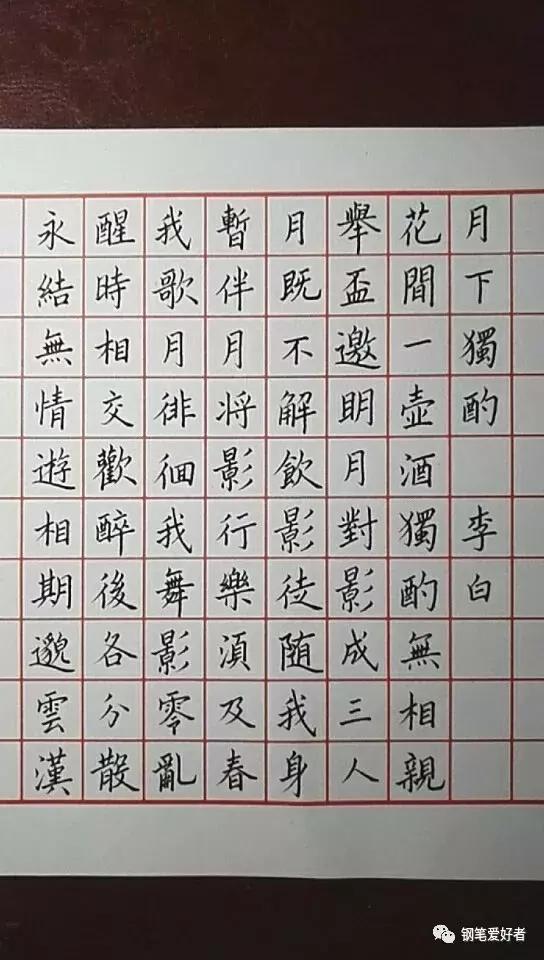 月下獨酌 李白
花間一壺酒獨酌無相親
舉盃邀明月對影成三人
月既不解飲影徒随我身
暫伴月将影行樂須及春
我歌月徘徊我舞影零亂
醒時相交歡醉後各分散
永結無情遊相期邈雲漢
钢笔爱好者